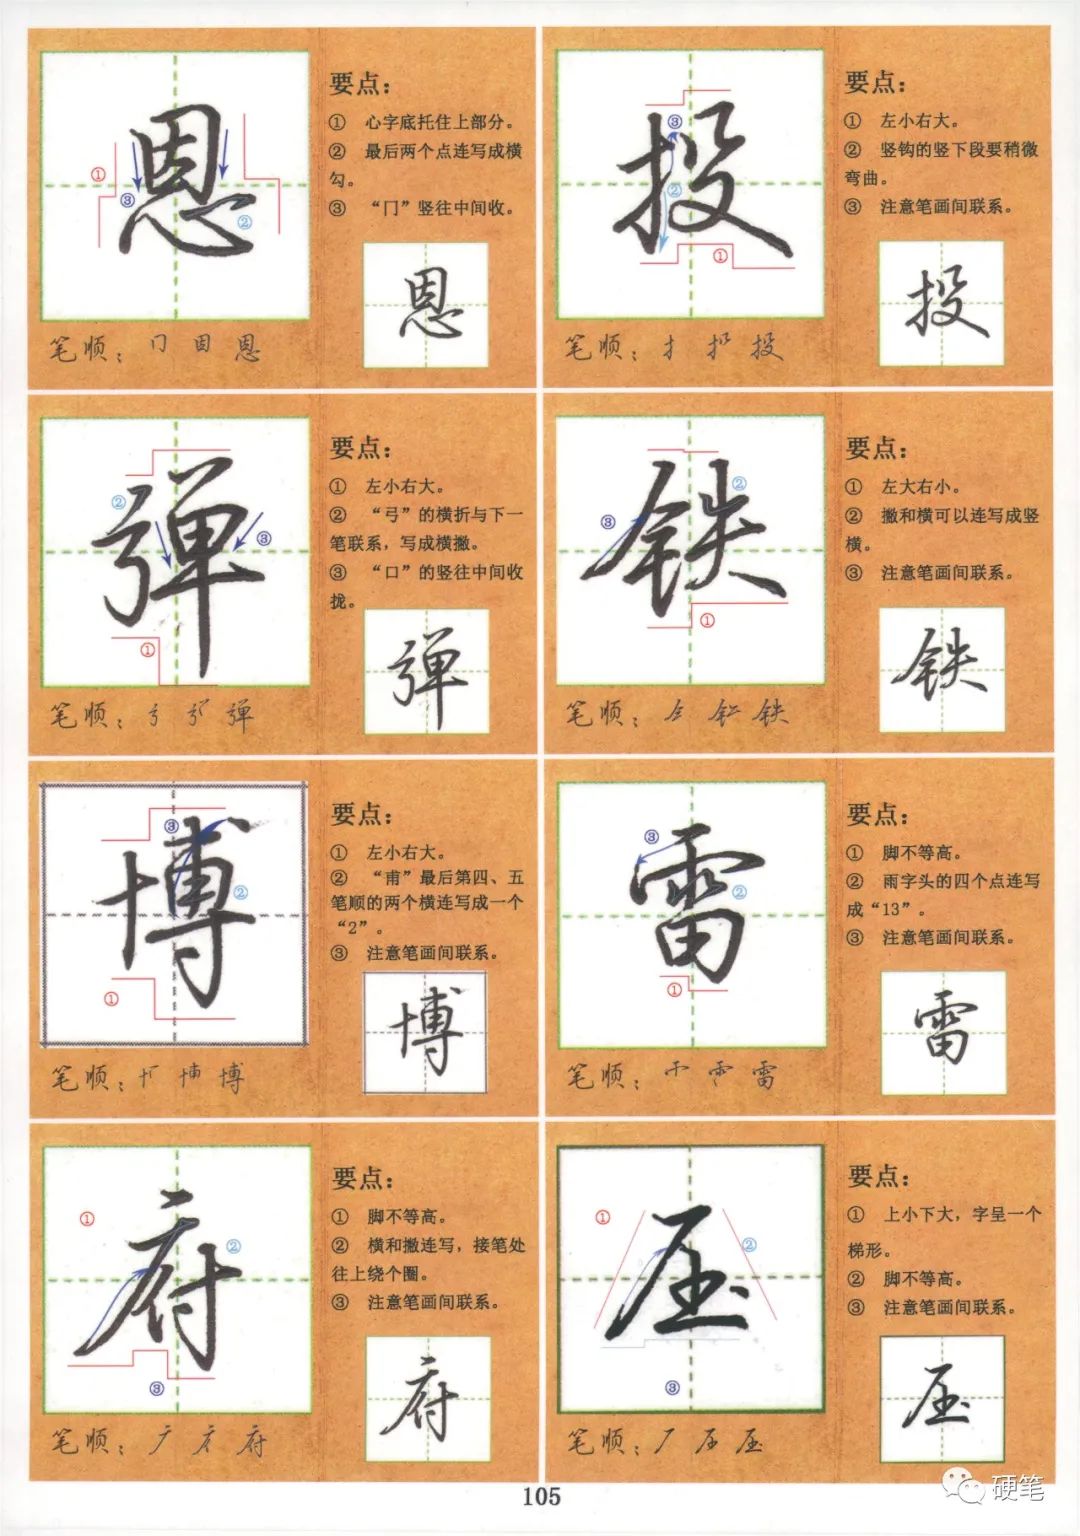 恩
要点：
① 心字底托住上部分。
② 最后两个点连写成横
勾。
③ “冂”竖往中间收。
① ② ③
恩
笔顺：冂 因 恩
投
要点：
① 左小右大。
② 竖钩的竖下段要稍微
弯曲。
③ 注意笔画间联系。
① ② ③
投
笔顺：扌 投
弹
要点：
① 左小右大。
② “弓”的横折与下一
笔联系，写成横撇。
③ “口”的竖往中间收
拢。
① ② ③
弹
笔顺：弹
铁
要点：
① 左大右小。
② 撇和横可以连写成竖
横。
③ 注意笔画间联系。
① ② ③
铁
笔顺：铁
博
要点：
① 左小右大。
② “甫”最后第四、五
笔顺的两个横连写成一个
“2”。
③ 注意笔画间联系。
① ② ③
博
笔顺：博
雷
要点：
① 脚不等高。
② 雨字头的四个点连写
成“13”。
③ 注意笔画间联系。
① ② ③
雷
笔顺：雷
府
要点：
① 脚不等高。
② 横和撇连写，接笔处
往上绕个圈。
③ 注意笔画间联系。
① ② ③
府
笔顺：广 府
压
要点：
① 上小下大，字呈一个
梯形。
② 脚不等高。
③ 注意笔画间联系。
① ② ③
压
笔顺：厂 压 压
105
硬笔